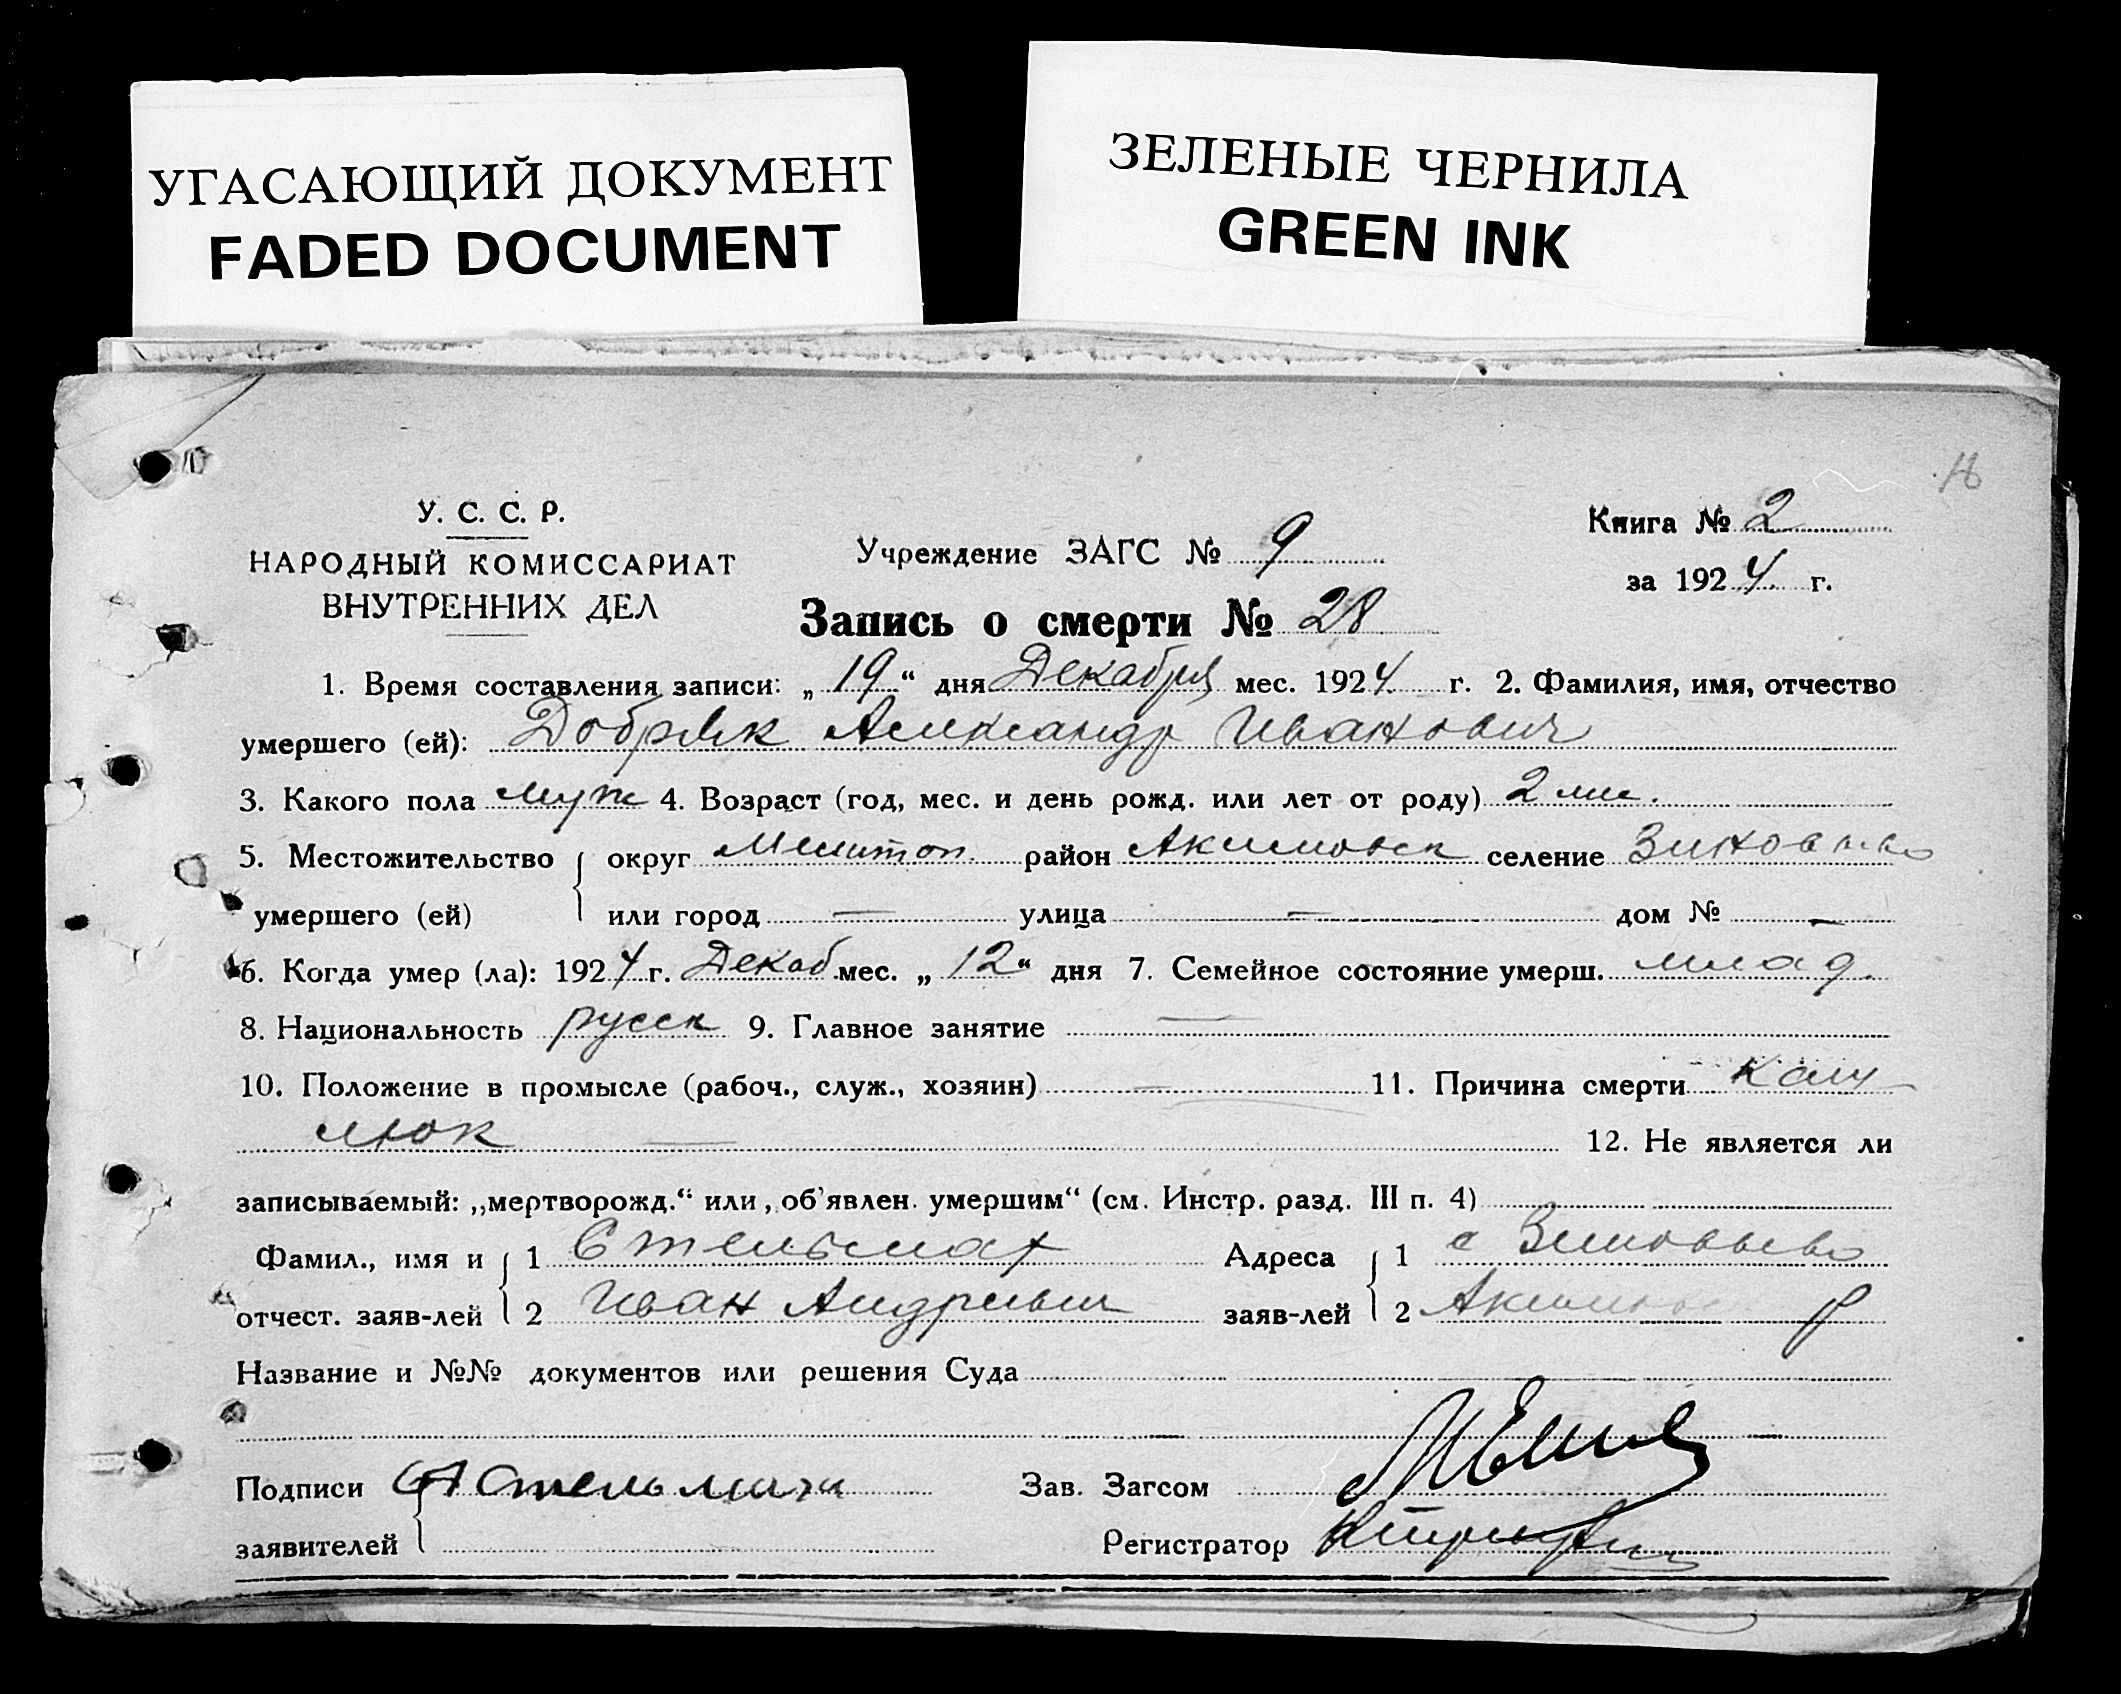 УГАСАЮЩИЙ ДОКУМЕНТ
FADED DOCUMENT
ЗЕЛЕНЫЕ ЧЕРНИЛА
GREEN INK
У. С. С. Р.
НАРОДНЫЙ КОМИССАРИАТ
ВНУТРЕННИХ ДЕЛ
Учреждение ЗАГС № 9
Книга № 2
за 1924 г.
Запись о смерти № 28
1. Время составления записи: „19“ дня Декабря мес. 1924 г. 2. Фамилия, имя, отчество
умершего (ей): Добряк Александр Иванович
3. Какого пола муж 4. Возраст (год, мес. и день рожд. или лет от роду) 2 мес.
5. Местожительство округ Мелитоп. район Акимовск селение Зиновьево
умершего (ей) или город — улица — дом № —
6. Когда умер (ла): 1924 г. Декаб. мес. „12“ дня 7. Семейное состояние умерш. млад.
8. Национальность русск 9. Главное занятие —
10. Положение в промысле (рабоч., служ., хозяин) — 11. Причина смерти
— 12. Не является ли
записываемый: „мертворожд.“ или „об'явлен. умершим“ (см. Инстр. разд. III п. 4)
Фамил., имя и 1 Стельмах Адреса 1 с Зиновьево
отчест. заяв-лей 2 Иван Андреевич заяв-лей 2 р
Название и №№ документов или решения Суда
Подписи Стельмах Зав. Загсом
заявителей Регистратор